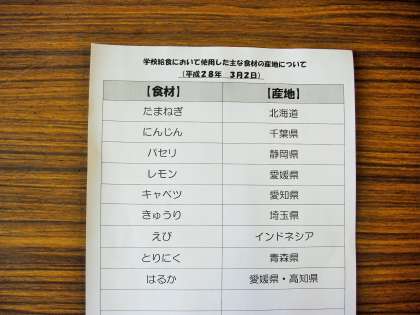 学校給食において使用した主な食材の産地について
(平成28年 3月2日)
【食材】 【産地】
たまねぎ 北海道
にんじん 千葉県
パセリ 静岡県
レモン 愛媛県
キャベツ 愛知県
きゅうり 埼玉県
えび インドネシア
とりにく 青森県
はるか 愛媛県・高知県